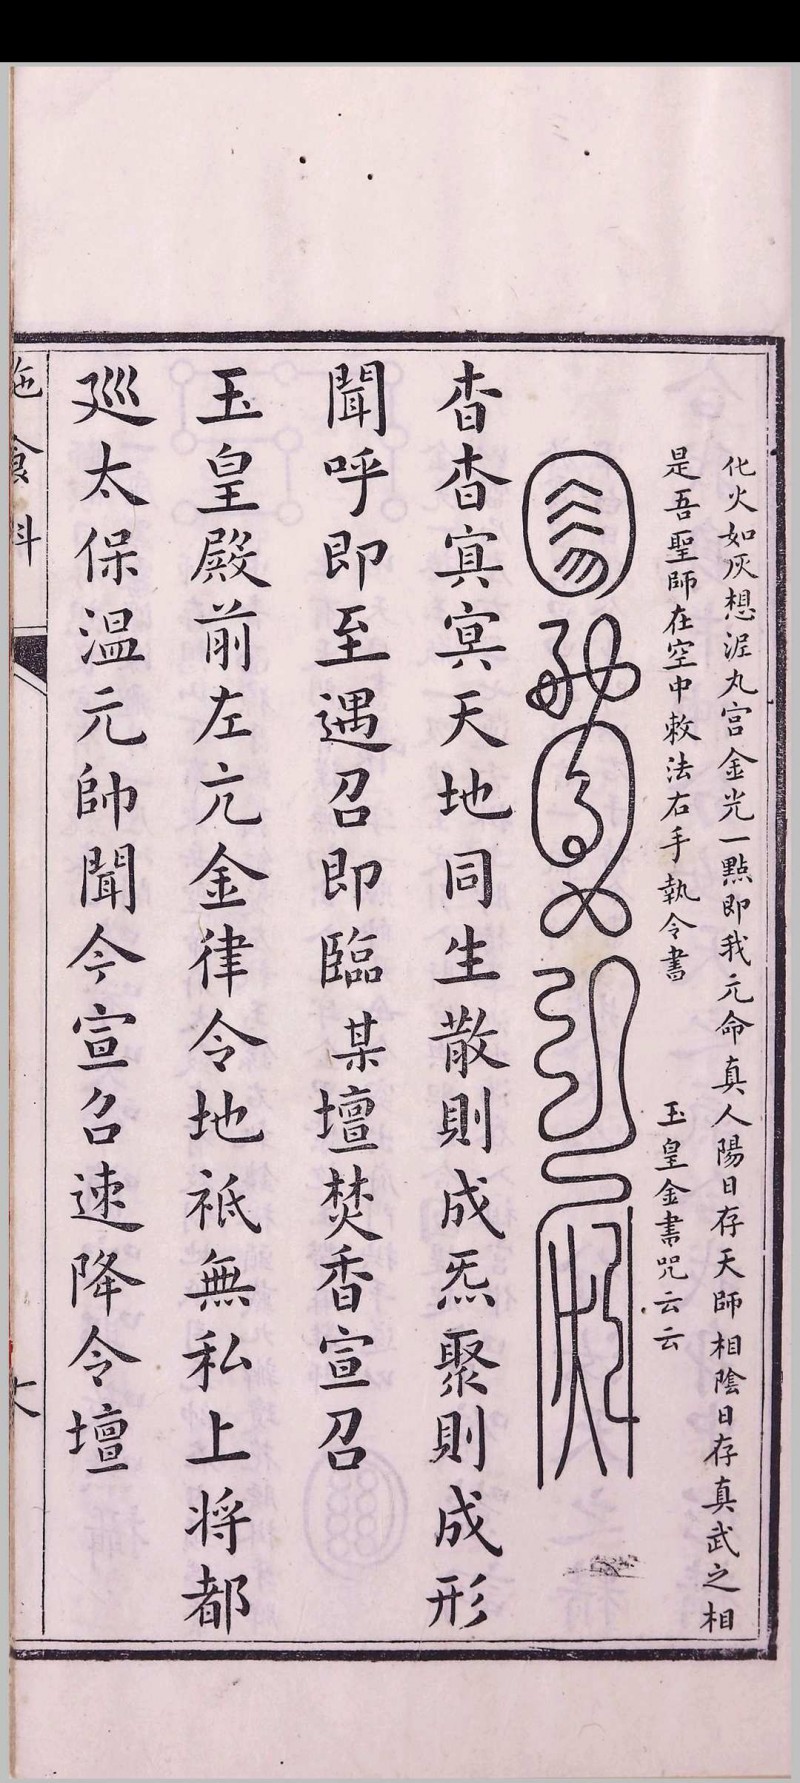 化火如灰想泥丸宮金光一點即我元命真人陽日存天師相陰日存真武之相
是吾聖師在空中敕法右手執令書　玉皇金書咒云云
杳杳冥冥天地同生散則成炁聚則成形
聞呼即至遇召即臨某壇焚香宣召
玉皇殿前左亢金律令地祇無私上将都
廵太保温元帥聞今宣召速降令壇
施食科
六